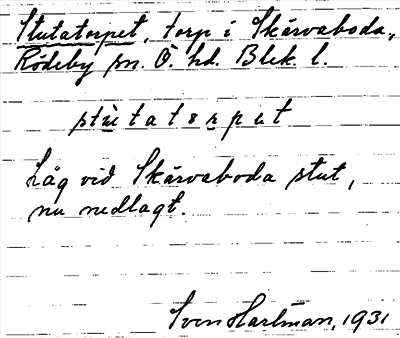 Stutatorpet, torp i Skärvaboda,
Rödeby sn. Ö. hd. Blek. l.
stùtatorpet
Låg vid Skärvaboda stut,
nu nedlagt.
Sven Hartman, 1931